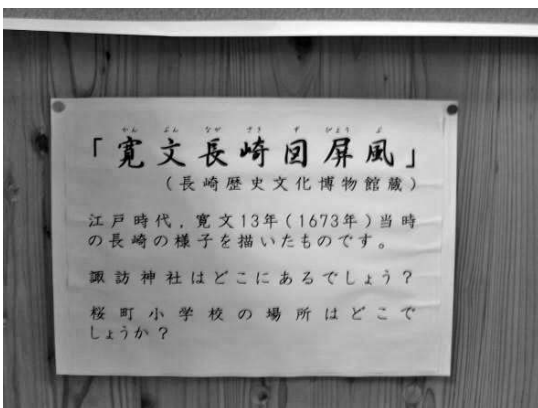 かん ぶん なが さき ず びょう ぶ
「寛文長崎図屏風」
(長崎歴史文化博物館蔵)
江戸時代，寛文13年(1673年)当時
の長崎の様子を描いたものです。
諏訪神社はどこにあるでしょう？
桜町小学校の場所はどこで
しょうか？